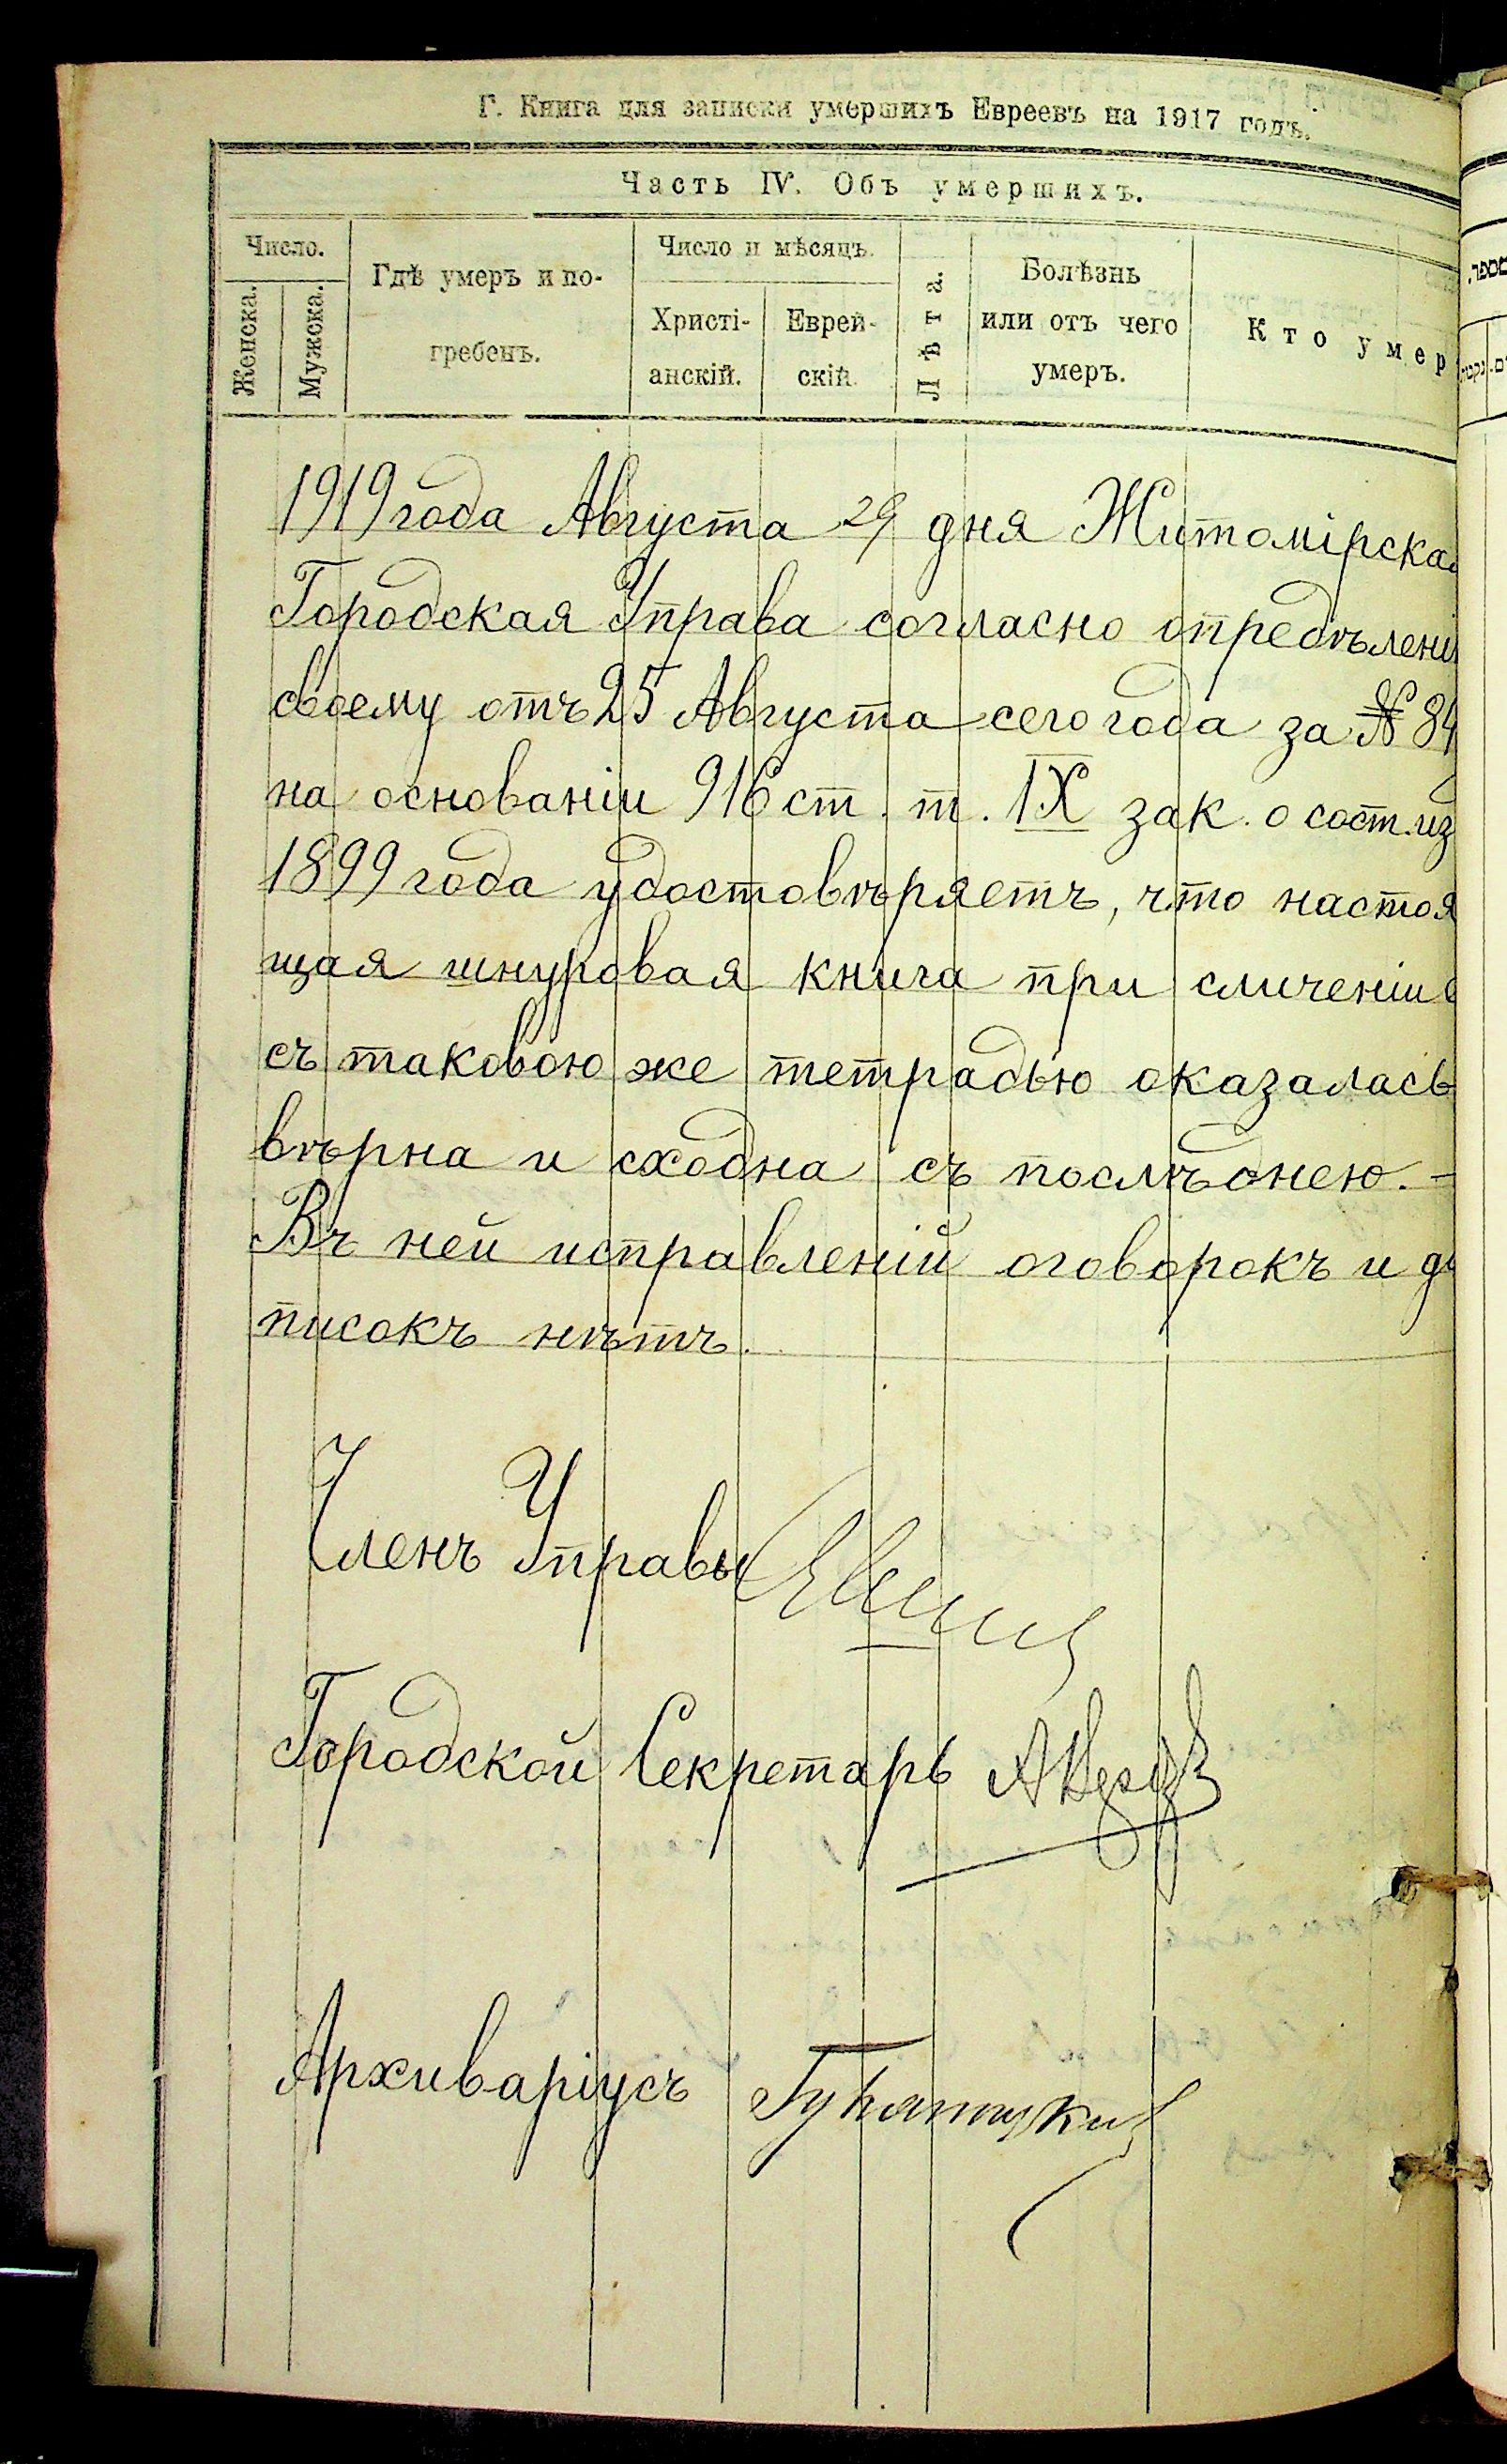 Г. Книга для записки умершихъ Евреевъ на 1917 годъ.
Часть IV. Объ умершихъ.
Число.
Женска.
Мужска.
Гдѣ умеръ и по-
гребенъ.
Число и мѣсяцъ.
Христі-
анскій.
Еврей-
скій.
Лѣта.
Болѣзнь
или отъ чего
умеръ.
Кто умер
מספר.
1919 года Августа 29 дня Житомірская
Городская Управа согласно опредѣлені
своему отъ 25 Августа сего года за № 84
на основаніи 916 ст. т. IX зак. о сост. из
1899 года удостовѣряетъ, что настоя
щая шнуровая книга при сличеніи
съ таковою же тетрадью оказалась
вѣрна и сходна съ послѣднею. -
Въ ней исправленій оговорокъ и до
писокъ нѣтъ.
Членъ Управы
Городской Секретарь
Архиваріусъ